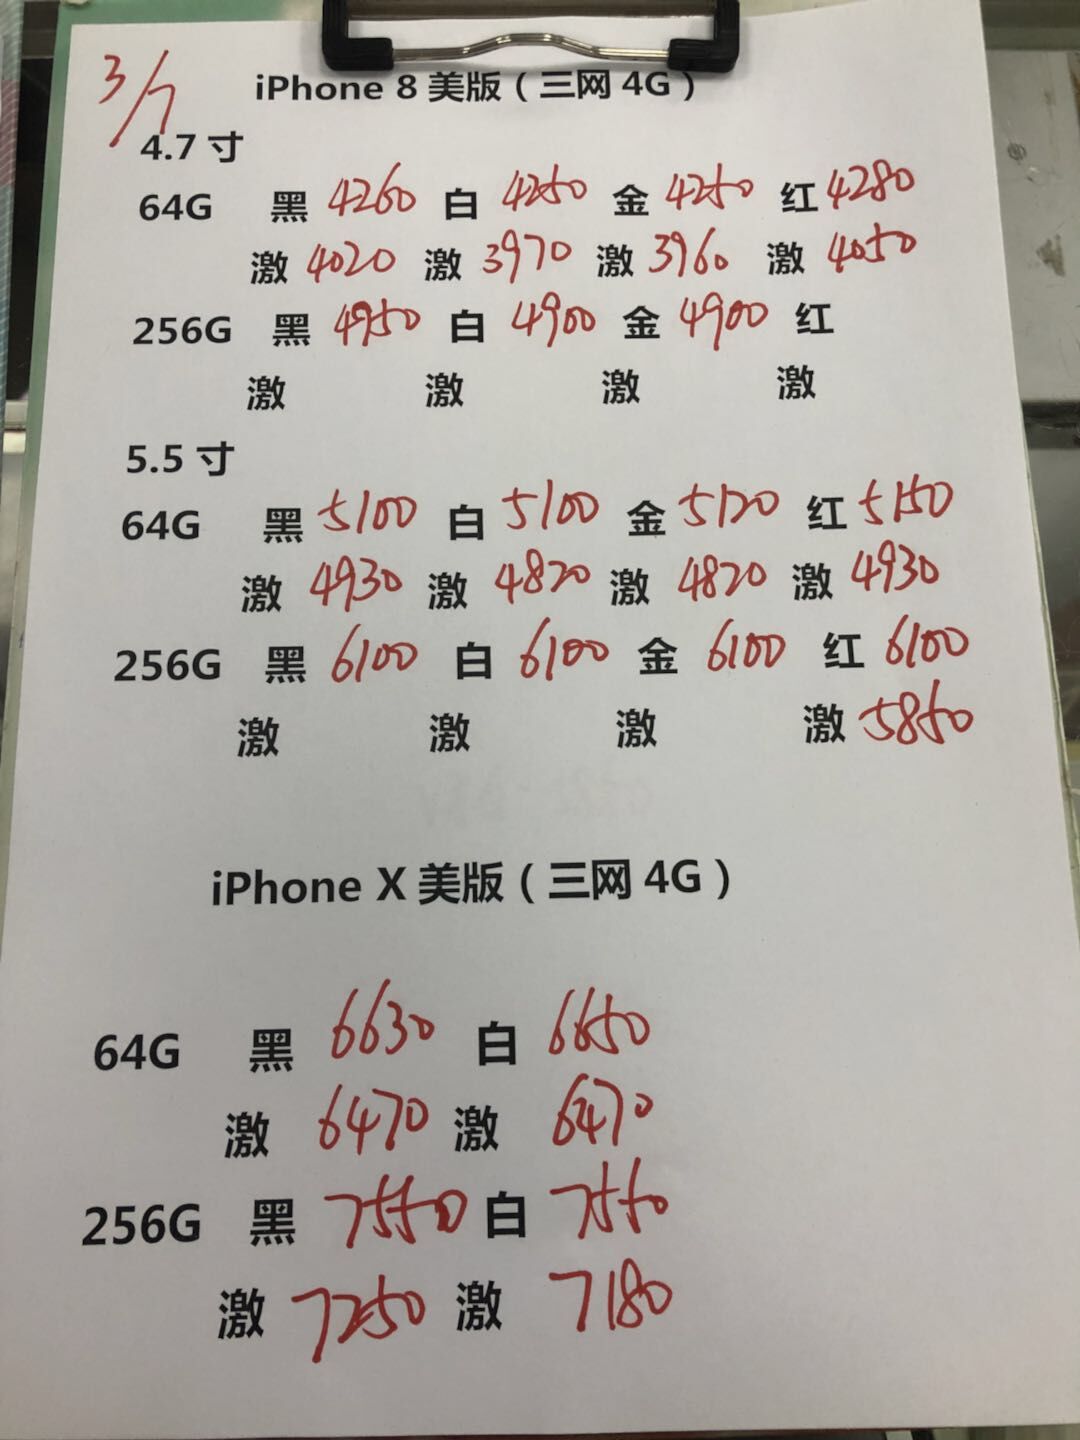 3/7
iPhone 8 美版（三网 4G）
4.7 寸
64G 黑 4260 白 4250 金 4250 红 4280
激 4020 激 3970 激 3960 激 4050
256G 黑 4950 白 4900 金 4900 红
激 激 激 激
5.5 寸
64G 黑 5100 白 5100 金 5120 红 5150
激 4930 激 4820 激 4820 激 4930
256G 黑 6100 白 6100 金 6100 红 6100
激 激 激 激 5850
iPhone X 美版（三网 4G）
64G 黑 6630 白 6650
激 6470 激 6470
256G 黑 7550 白 7550
激 7250 激 7180